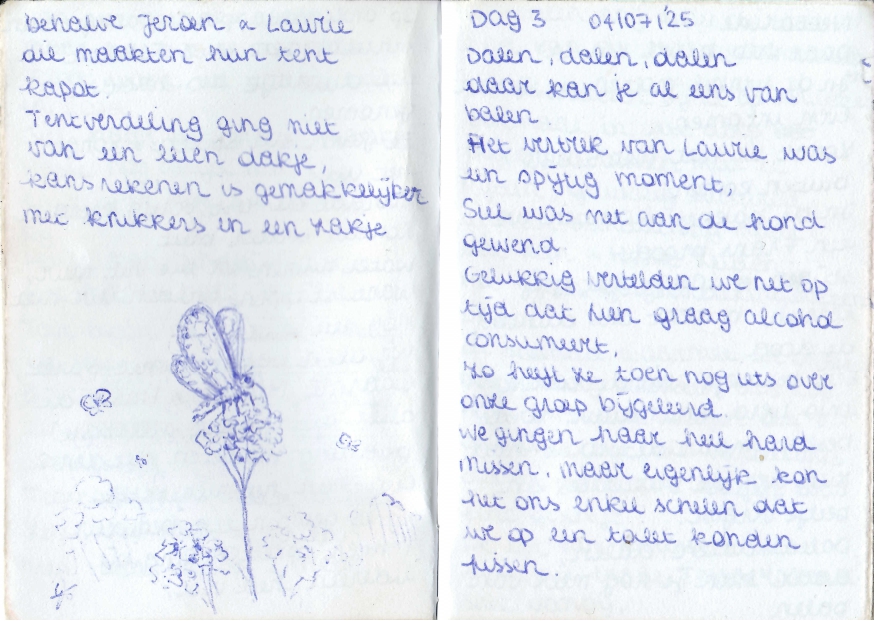 behalve Jeroen & Laurie
die maakten hun tent
kapot.
Tentverdeling ging niet
van een leien dakje,
kansrekenen is gemakkelijker
met knikkers in een zakje
Dag 3 04/07/'25
Dalen, dalen, dalen
daar kan je al eens van
balen
Het vertrek van Laurie was
een opzijg moment.
Siel was niet aan de hond
gewend
Gelukkig vertelden we net op
tijd dat Sien graag alcohol
consumeert,
zo heeft ze toen nog iets over
onze groep bijgeleerd
we gingen haar heel hard
missen, maar eigenlijk kon
het ons enkel schelen dat
we op een toilet konden
pissen